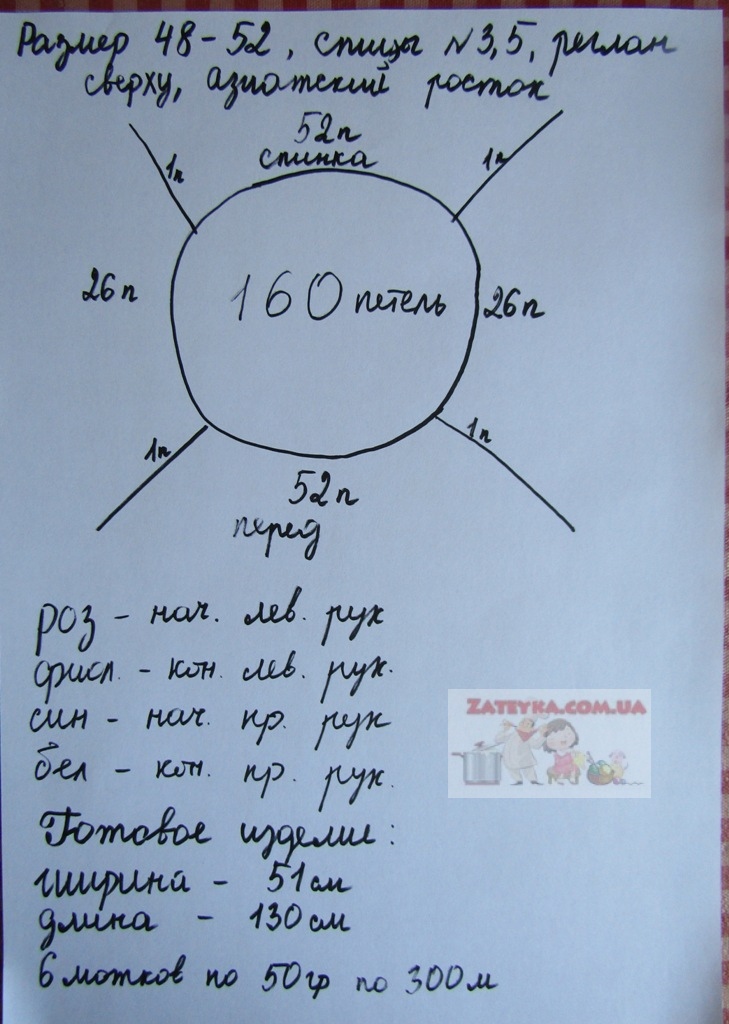 Размер 48-52, спицы №3,5, реглан
сверху, азиатский росток
52п
спинка
1п
1п
26п
160 петель
26п
1п
1п
52п
перед
роз - нач. лев. рук
фиол. - кон. лев. рук.
син - нач. пр. рук
бел - кон. пр. рук.
ZATEYKA.COM.UA
Готовое изделие:
ширина - 51см
длина - 130см
6 мотков по 50гр по 300м